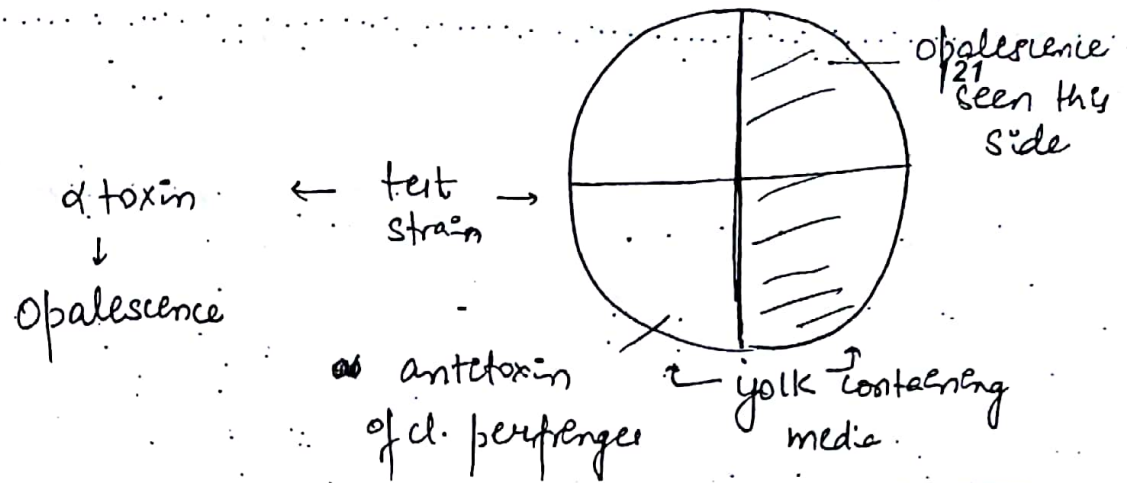 opalescence
21
seen this
side
α toxin ← test strain →
↓
opalescence
antitoxin
of cl. perfringes
yolk containing
media.